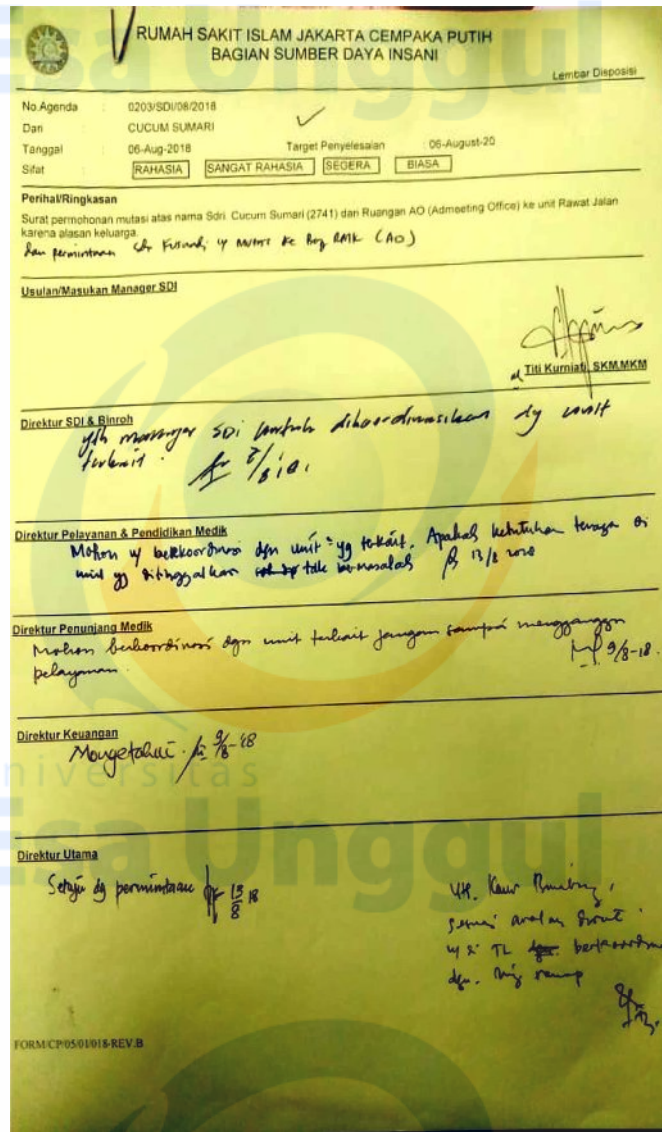 RUMAH SAKIT ISLAM JAKARTA CEMPAKA PUTIH
BAGIAN SUMBER DAYA INSANI
Lembar Disposisi
No.Agenda : 0203/SDI/08/2018
Dari : CUCUM SUMARI
Tanggal : 06-Aug-2018 Target Penyelesaian : 06-August-20
Sifat RAHASIA SANGAT RAHASIA SEGERA BIASA
Perihal/Ringkasan
Surat permohonan mutasi atas nama Sdri. Cucum Sumari (2741) dari Ruangan AO (Admeeting Office) ke unit Rawat Jalan
karena alasan keluarga.
dan permintaan ke (AO)
Usulan/Masukan Manager SDI
Titi Kurniati, SKM,MKM
Direktur SDI & Binroh
yth manager SDI untuk dikoordinasikan dg unit
terkait.
Direktur Pelayanan & Pendidikan Medik
Mohon u/ berkoordinasi dgn unit² yg terkait. Apakah kebutuhan tenaga di
unit yg ditinggalkan tdk bermasalah 13/8 2018
Direktur Penunjang Medik
Mohon berkoordinasi dgn unit terkait jangan sampai mengganggu
pelayanan. 9/8-18.
Direktur Keuangan
Mengetahui. 9/8-'18
Direktur Utama
Setuju dg permintaan 13/8 18
Yth. Kaur
sesuai
u/ di TL
dgn.
FORM/CP/05/01/018-REV.B
Universitas
Esa Unggul